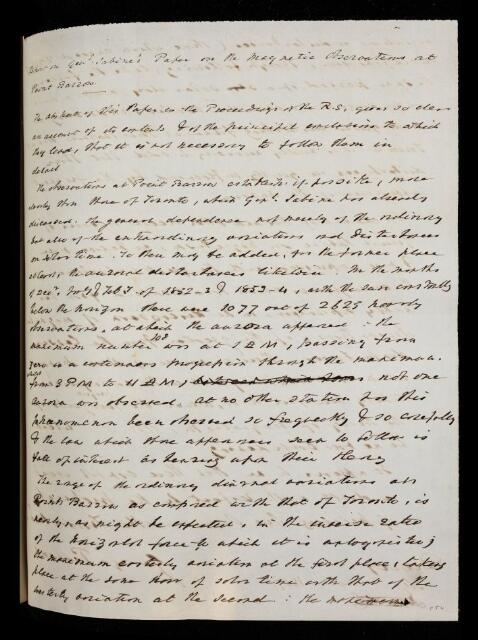 Genl Sabine's Paper on the Magnetic Observations at
Point Barrow
The abstract of this Paper in the Proceedings of the R.S. gives so clear
an account of its contents & of the principal conclusions to which
they lead, that it is not necessary to follow them in
detail
The observations at Point Barrow establish if possible, more
clearly than those of Toronto, which Genl Sabine has already
discussed, the general dependence not merely of the ordinary
but also of the extraordinary variations and disturbances
on solar time. To these may be added, for the former place
at least, the auroral disturbances likewise. In the months
of Decr, Jany & Feby of 1852-3 & 1853-4, with the sun constantly
below the horizon there were 1077 out of 2625 hourly
observations, at which the aurora appeared: the
maximum number 108 was at 1 A M, passing from
zero in a continuous progression through the maximum.
from 3 P M to 4 P M, not one
aurora was observed. At no other station has this
phenomenon been observed so frequently & so carefully
& the law which those appearances seem to follow is
full of interest as bearing upon their theory
The range of the ordinary diurnal variations at
Point Barrow as compared with that of Toronto, is
nearly, as might be expected, in the inverse ratio
of the horizontal force to which it is antagonistic;
the maximum easterly variation at the first place, takes
place at the same hour of solar time with that of the
westerly variation at the second: the